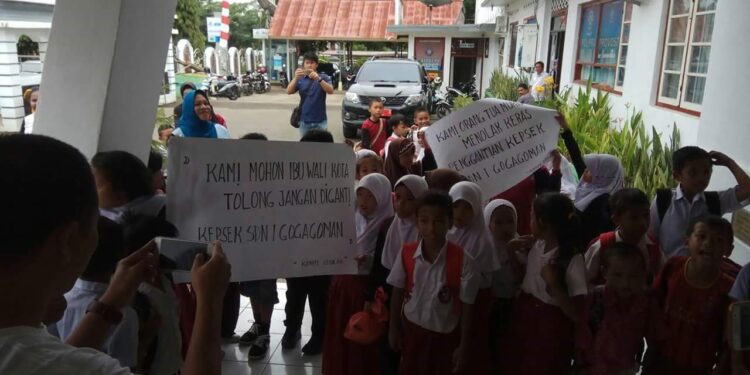 " KAMI MOHON IBU WALI KOTA
TOLONG JANGAN DIGANTI
KEPSEK SDN 1 GOGAGOMAN "
" KOMITE SEKOLAH "
KAMI ORANG TUA MURID
MENOLAK KERAS
PENGGANTIAN KEPSEK
SDN 1 GOGAGOMAN